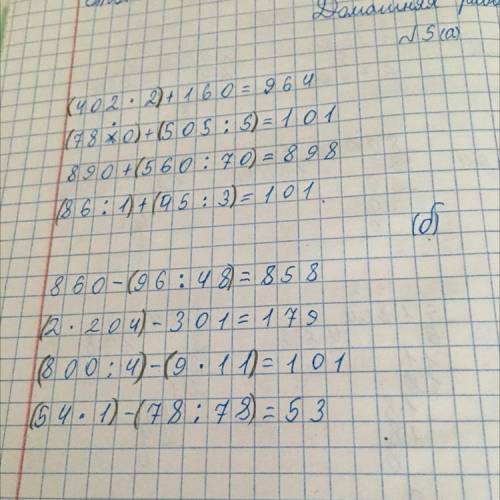 Домашняя
№5(а)
(402·2)+160=964
(78·0)+(505:5)=101
890+(560:70)=898
(86:1)+(45:3)=101.
(б)
860-(96:48)=858
(2·204)-301=179
(800:4)-(9·11)=101
(54·1)-(78:78)=53